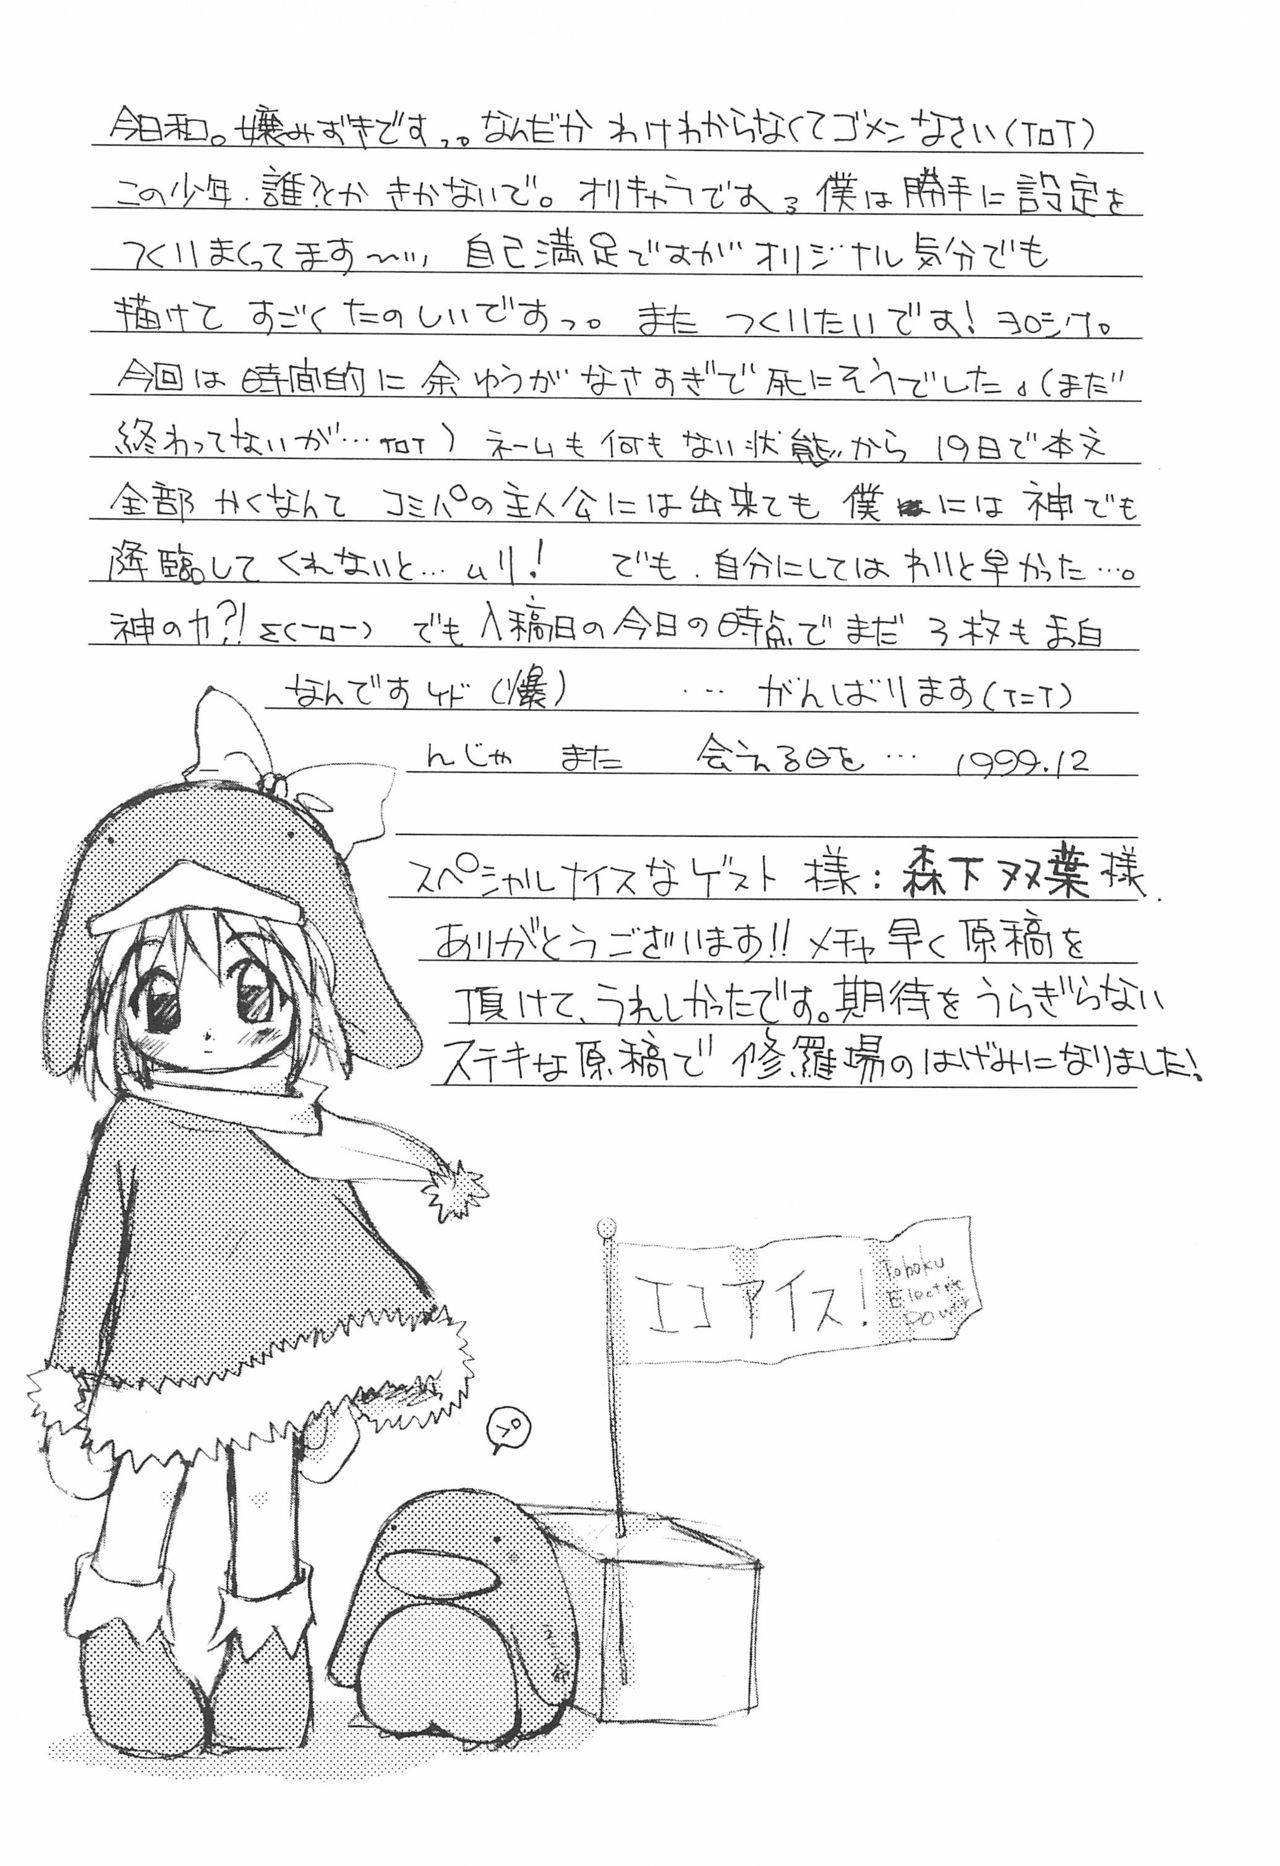 今日和。嬢みずきですっ。なんだか わけわからなくてゴメンなさい(ToT)
この少年.誰?とか きかないで。オリキャラです。僕は勝手に設定を
つくりまくってます〜 自己満足ですがオリジナル気分でも
描けて すごくたのしいですっ。また つくりたいです!ヨロシク。
今回は時間的に余ゆうがなさすぎで死にそうでした。(まだ
終わってないが…ToT) ネームも何もない状態から 19日で本文
全部 かくなんて コミパの主人公には出来ても 僕には 神でも
降臨してくれないと…ムリ! でも.自分にしてはわりと早かった…。
神の力?!Σ(ーロー) でも入稿日の今日の時点でまだ 3枚もま白
なんですケド(爆) …がんばります(T=T)
んじゃ また 会える日を… 1999.12
スペシャルナイスなゲスト 様:森下双葉様
ありがとうございます!!メチャ早く原稿を
頂けて、うれしかったです。期待をうらぎらない
ステキな原稿で修羅場のはげみになりました!
エコアイス!
Tohoku
Electric
Power